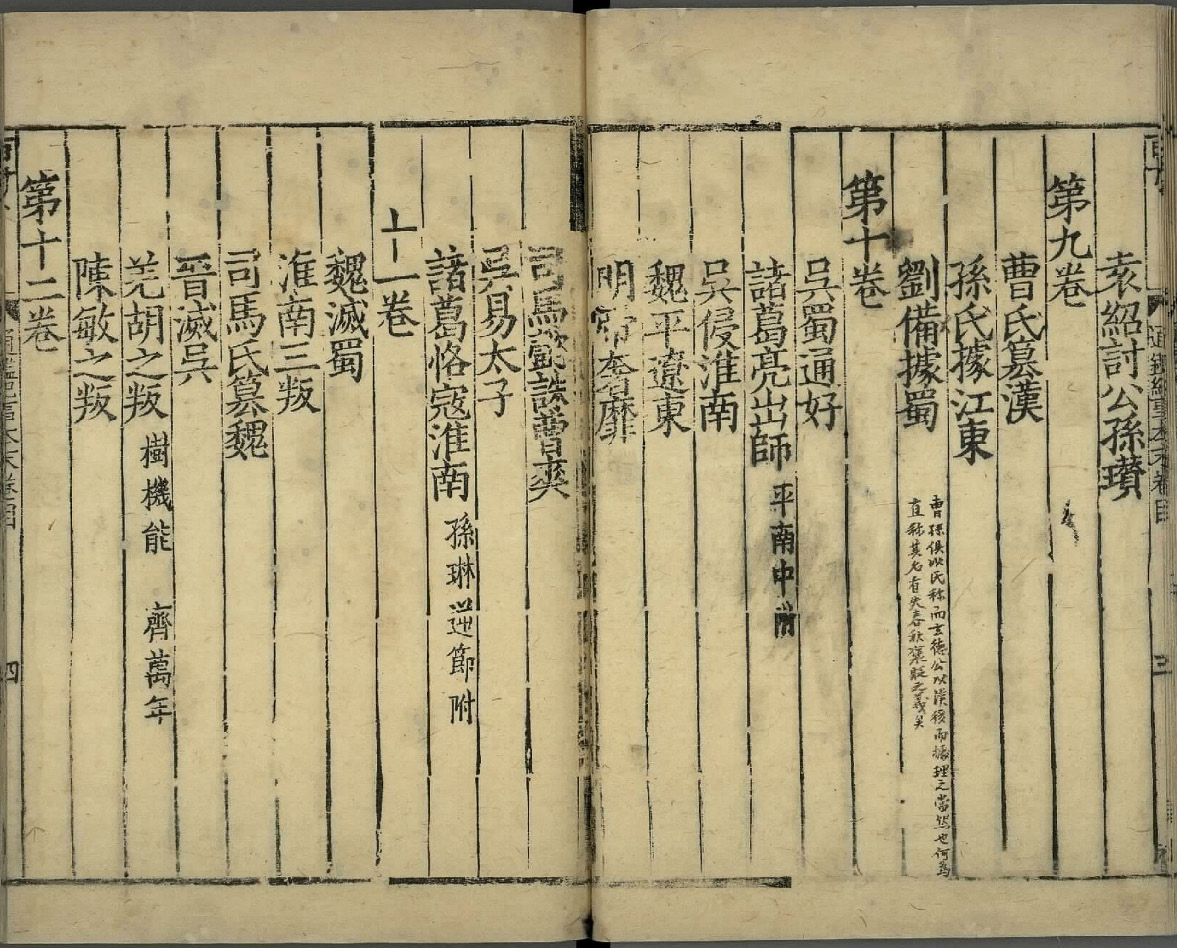 袁紹討公孫瓚
第九卷
曹氏篡漢
孫氏據江東
劉備據蜀
曹孫俱以氏称而玄德公以漢後而據理之當然也何爲
直称其名者失春秋褒貶之義矣
第十卷
吳蜀通好
諸葛亮出師 平南中附
吳侵淮南
魏平遼東
明帝奢靡
司馬懿誅曹爽
吳易太子
諸葛恪寇淮南 孫琳逆節附
十一卷
魏滅蜀
淮南三叛
司馬氏篡魏
晉滅吳
羌胡之叛 樹機能 齊萬年
陳敏之叛
第十二卷